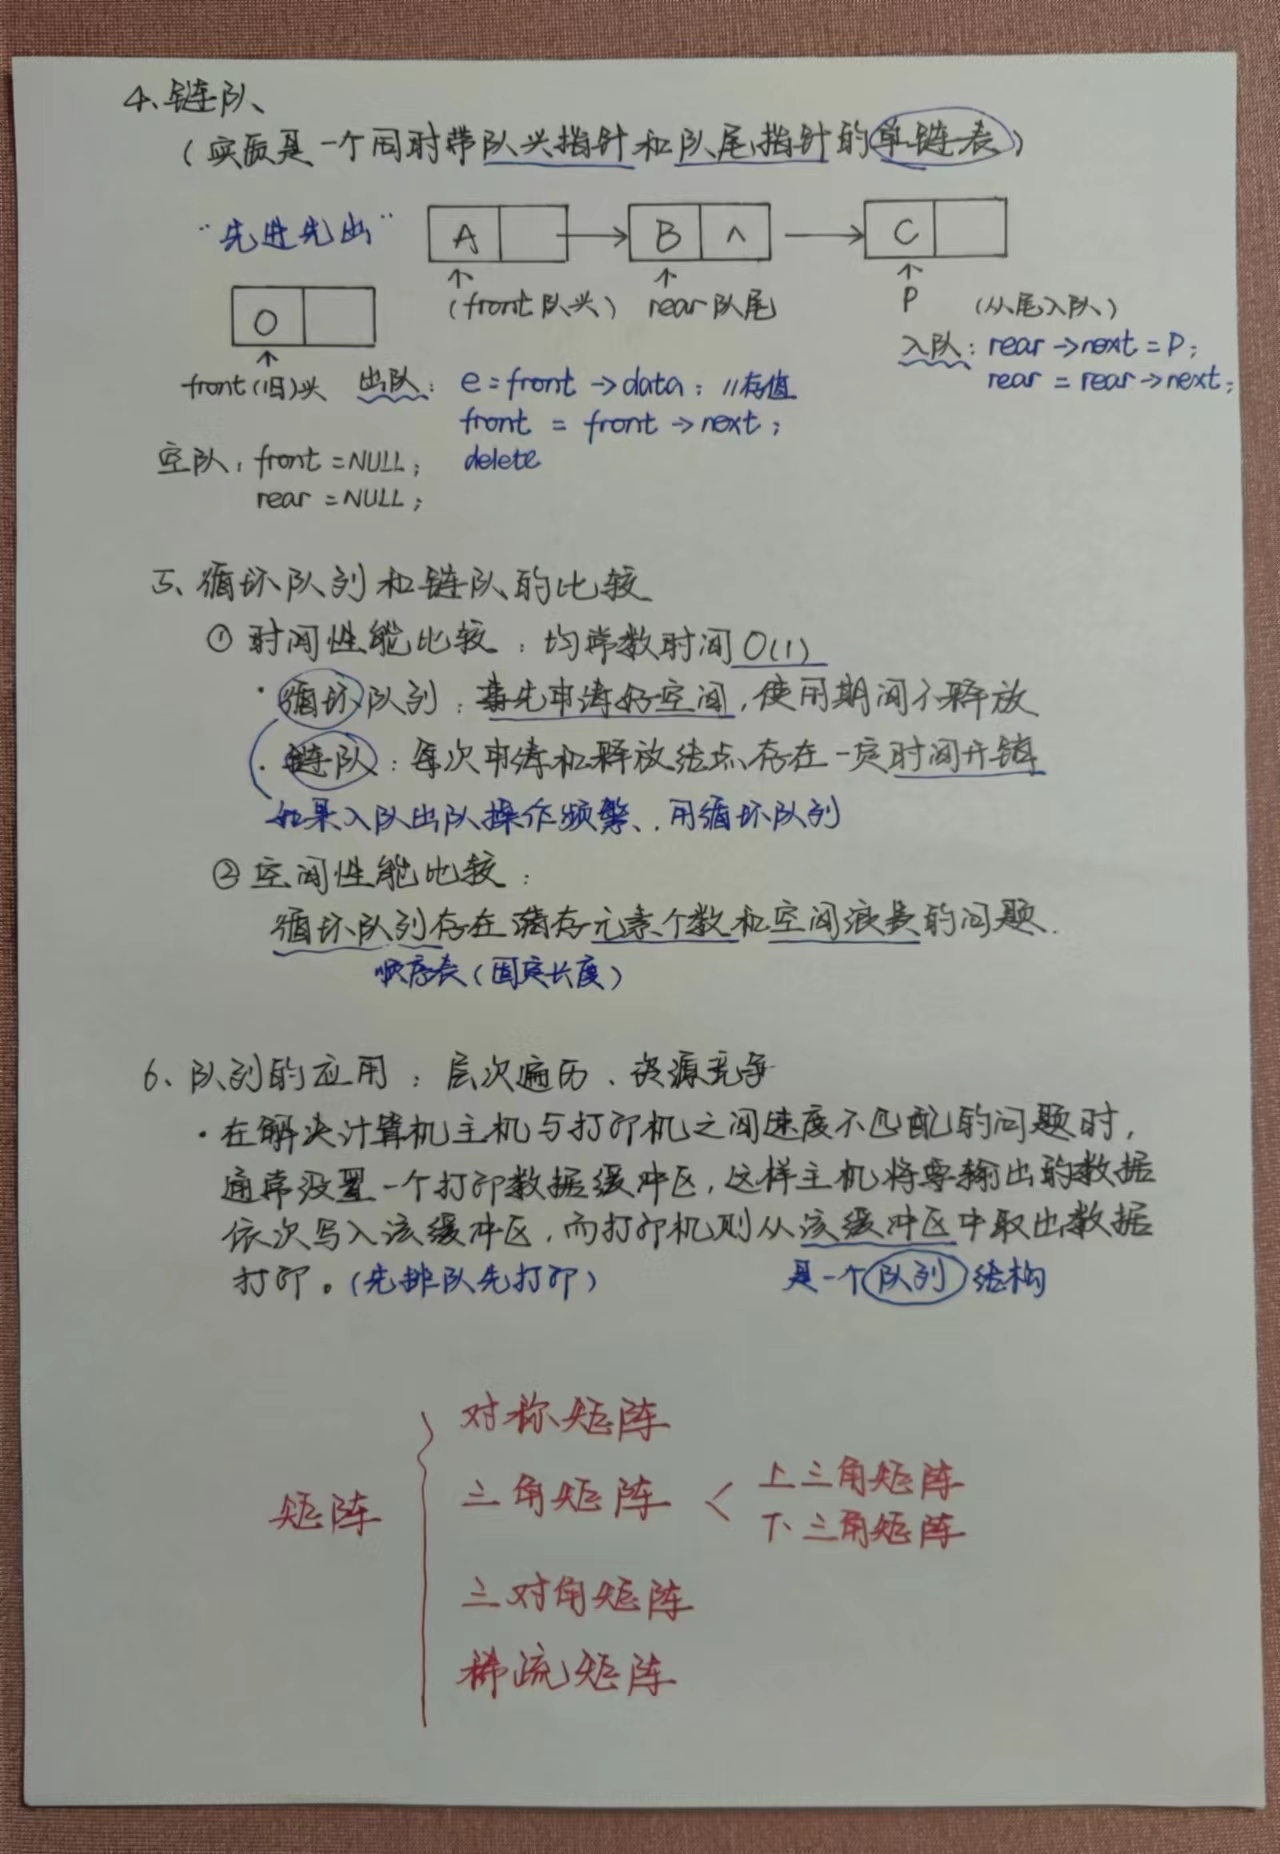 4、链队
（实质是一个同时带队头指针和队尾指针的单链表）
“先进先出”
A B ∧ C
（front 队头） rear 队尾 P （从尾入队）
入队：rear→next=P；
rear = rear→next；
O
front（旧）头
出队：e=front→data；//存值
front = front→next；
delete
空队：front=NULL；
rear=NULL；
5、循环队列和链队的比较
① 时间性能比较：均常数时间O(1)
·循环队列：事先申请好空间，使用期间不释放
·链队：每次申请和释放结点存在一定时间开销
如果入队出队操作频繁，用循环队列
② 空间性能比较：
循环队列存在储存元素个数和空间浪费的问题.
顺序表（固定长度）
6、队列的应用：层次遍历、资源竞争
·在解决计算机主机与打印机之间速度不匹配的问题时，
通常设置一个打印数据缓冲区，这样主机将要输出的数据
依次写入该缓冲区，而打印机则从该缓冲区中取出数据
打印。（先排队先打印） 是一个队列结构
矩阵
对称矩阵
三角矩阵 < 上三角矩阵
下三角矩阵
三对角矩阵
稀疏矩阵